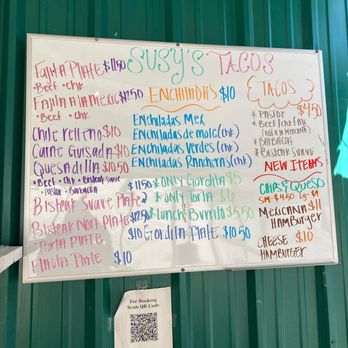 SUSY'S TACOS
FAJITA PLATE $11.50
• Beef • Chk
FAJITA A LA MEXICA $12.50
• Beef • Chk
Chile Relleno $10
Carne Guisada $10
Quesadilla $10.50
• Beef • Chk • Bisteak Suave
• Pastor • Barbacoa
Bisteak Suave Plate $11.50
Bisteak Nort Plate $12.50
PLATE $10
Plate $10
ENCHILADAS $10
Enchiladas Mex
Enchiladas de mole (chk)
Enchiladas Verdes (chk)
Enchiladas Rancheras (chk)
* Only Gordita $5
* Only Torta
* Lunch Burrito $5.50
Gordita Plate $10.50
TACOS
$4.50
* Pastor
* Beef
* Barbacoa
* Bisteak Suave
NEW ITEMS
CHIPS & QUESO
SM-$4.50 LG-$
MEXICANA $11
HAMBURGER
CHEESE $10
HAMBURGER
For Booking
Scan QR Code